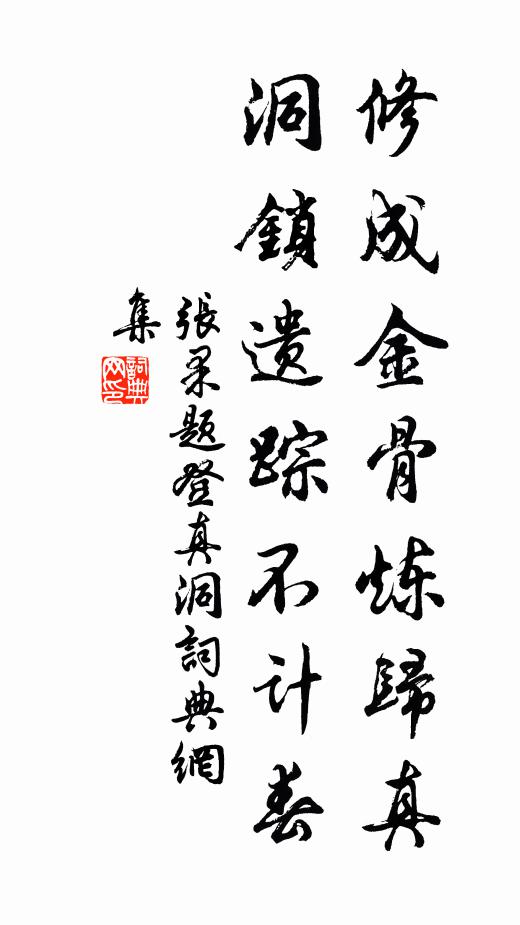 修成金骨炼歸真
洞鎖遗踪不计春
張果題登真洞詞典網
集
詞典
网印